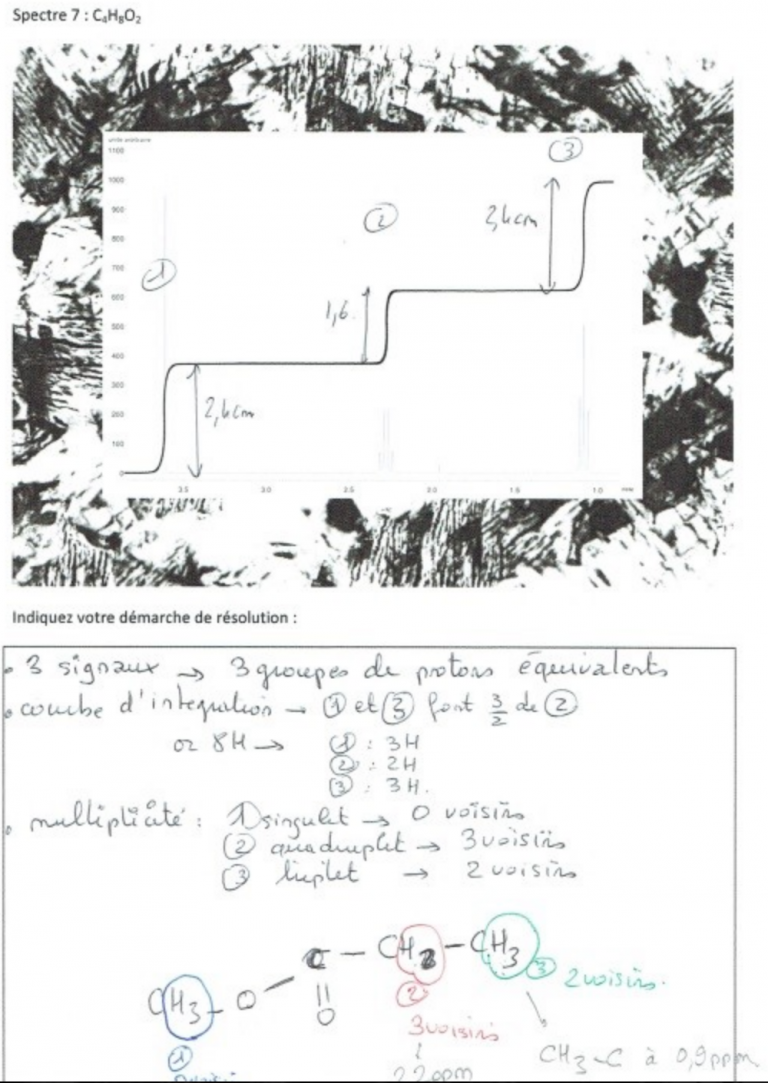 Spectre 7 : C₄H₈O₂
unité arbitraire
1100
1000
900
800
700
600
500
400
300
200
100
0
①
②
③
2,4cm
1,6.
2,4cm
3.5
3.0
2.5
2.0
1.5
1.0
Indiquez votre démarche de résolution :
• 3 signaux → 3 groupes de protons équivalents
• courbe d'integration → ① et ③ font 3/2 de ②
or 8H → ① : 3H
② : 2H
③ : 3H.
• multiplicité : 1) singulet → 0 voisins
② quadruplet → 3 voisins
③ triplet → 2 voisins
CH₃ - O - C - CH₂ - CH₃
||
O
①
②
③ 2 voisins.
3 voisins
CH₃-C à 0,9ppm
2,2ppm